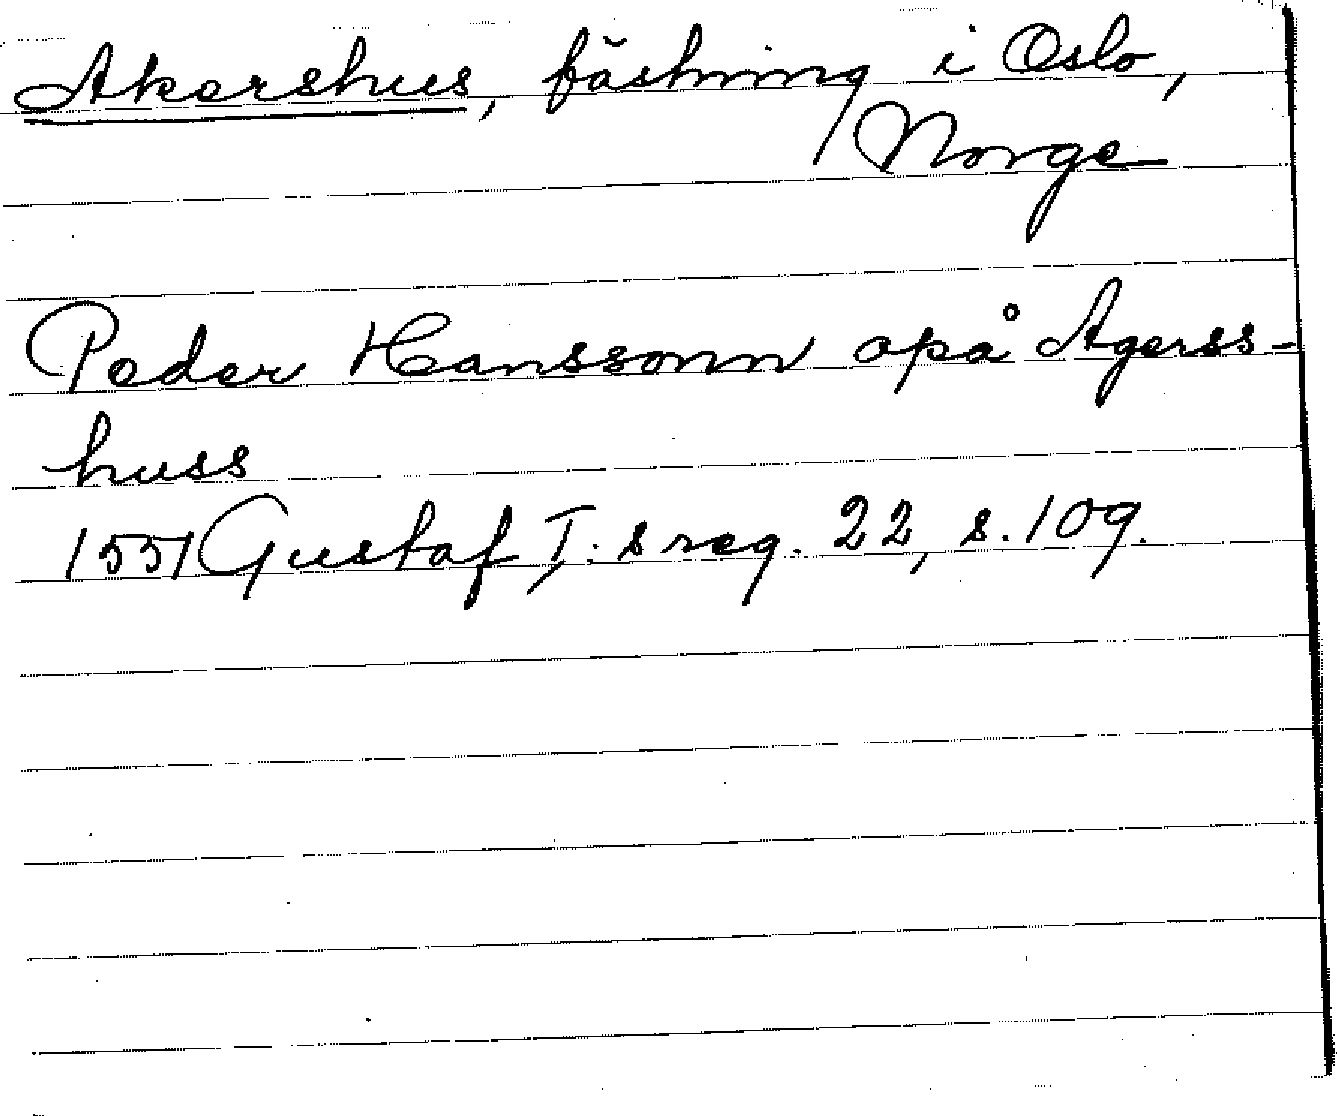 Akershus, fästning i Oslo,
Norge
Peder Hanssonn opå Agerss-
huss
1551 Gustaf I:s reg. 22, s. 109.